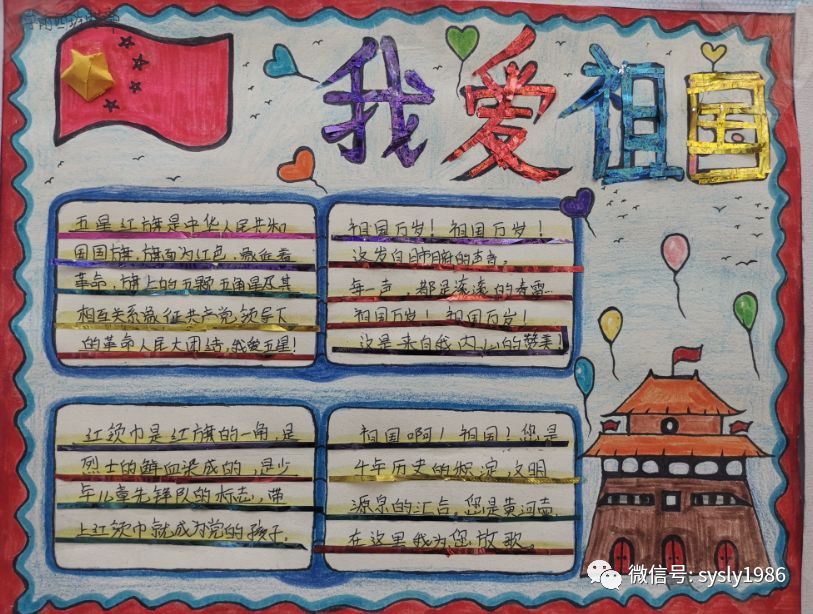 我爱祖国
五星红旗是中华人民共和
国国旗,旗面为红色,象征着
革命,旗上的五颗五角星及其
相互关系象征共产党领导下
的革命人民大团结,我爱五星!
祖国万岁!祖国万岁!
这发自肺腑的声音。
每一声,都是滚滚的春雷…
祖国万岁!祖国万岁!
这是来自我内心的赞美!
红领巾是红旗的一角,是
烈士的鲜血染成的,是少
年儿童先锋队的标志,带
上红领巾就成为党的孩子。
祖国啊!祖国!您是
千年历史的积淀,文明
源泉的汇合。您是黄河壶
在这里我为您放歌。
微信号: sysly1986